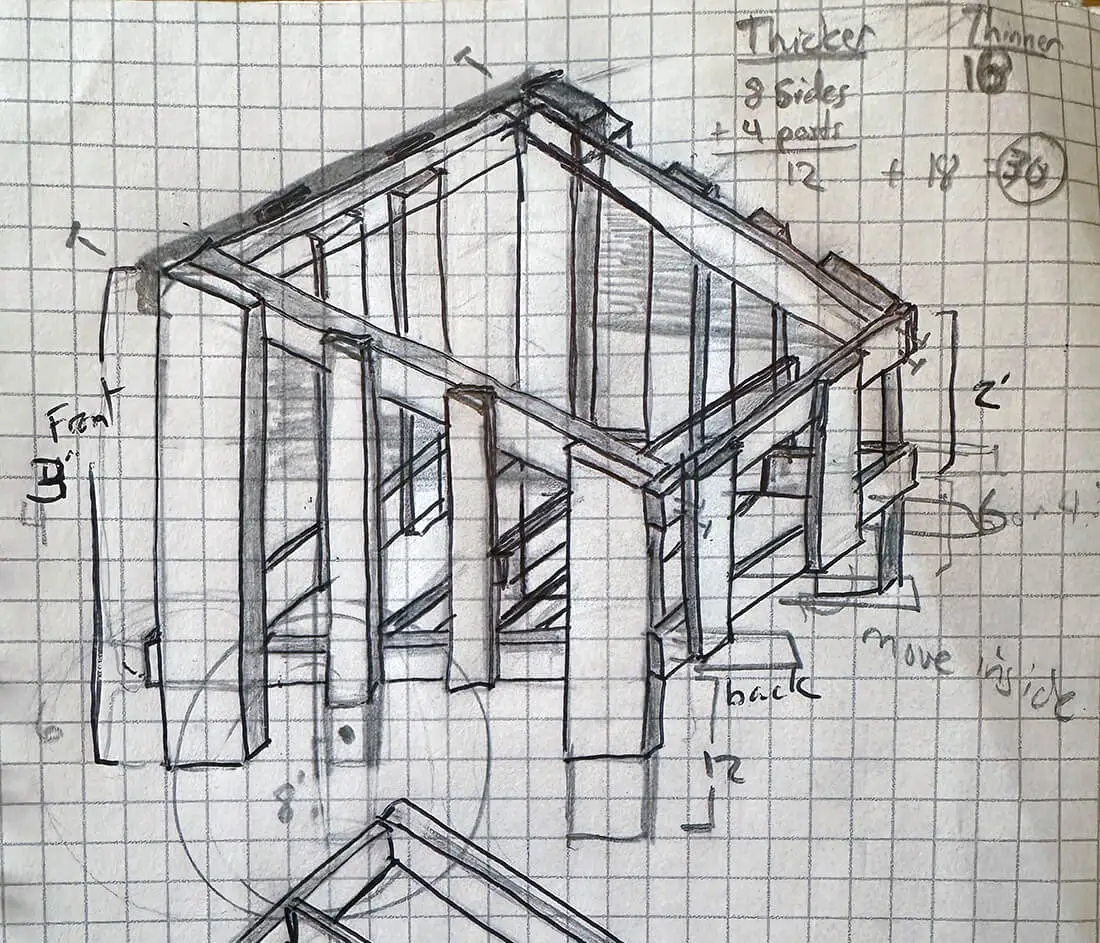 Thicker
8 Sides
+ 4 posts
12 + 18 = 30
Thinner
Front
2'
6 or 4'
Move inside
back
12
8'